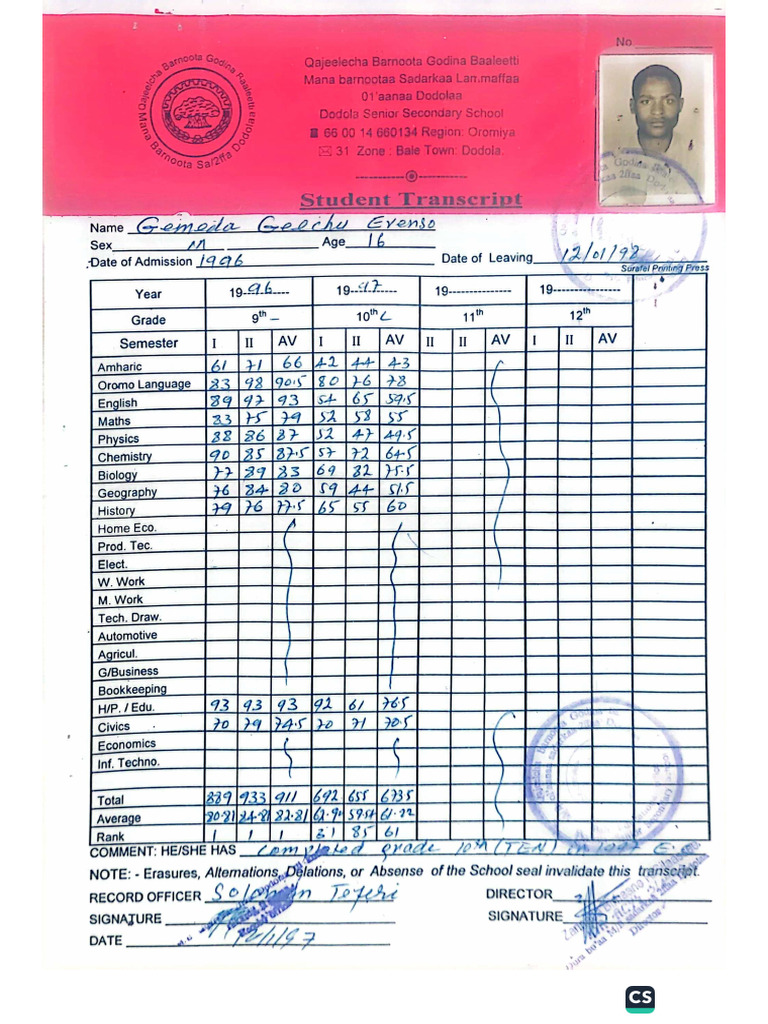 No
Qajeelecha Barnoota Godina Baaleetti
Mana barnootaa Sadarkaa Lan.maffaa
01'aanaa Dodolaa
Dodola Senior Secondary School
☎ 66 00 14 660134 Region: Oromiya
✉ 31 Zone : Bale Town: Dodola.
Student Transcript
Name Gemeda Geechu Evenso
Sex M Age 16
Date of Admission 1996 Date of Leaving 12/01/98
Surafel Printing Press
Year 19-96 19-97 19 19
Grade 9th 10th 11th 12th
Semester I II AV I II AV II II AV I II AV
Amharic 61 71 66 42 44 43
Oromo Language 83 98 90.5 80 76 78
English 89 97 93 54 65 59.5
Maths 83 75 79 52 58 55
Physics 88 86 87 52 47 49.5
Chemistry 90 85 87.5 57 72 64.5
Biology 77 89 83 69 82 75.5
Geography 76 84 80 59 44 51.5
History 79 76 77.5 65 55 60
Home Eco.
Prod. Tec.
Elect.
W. Work
M. Work
Tech. Draw.
Automotive
Agricul.
G/Business
Bookkeeping
H/P. / Edu. 93 93 93 92 61 76.5
Civics 70 79 74.5 70 71 70.5
Economics
Inf. Techno.
Total 889 933 911 692 655 673.5
Average 80.81 84.81 82.81 62.90 59.54 61.22
Rank 1 1 1 85 61
COMMENT: HE/SHE HAS completed grade 10th (TEN) in 1997 E.C
NOTE: - Erasures, Alternations, Delations, or Absense of the School seal invalidate this transcript.
RECORD OFFICER Solomon Teferi DIRECTOR
SIGNATURE SIGNATURE
DATE
CS